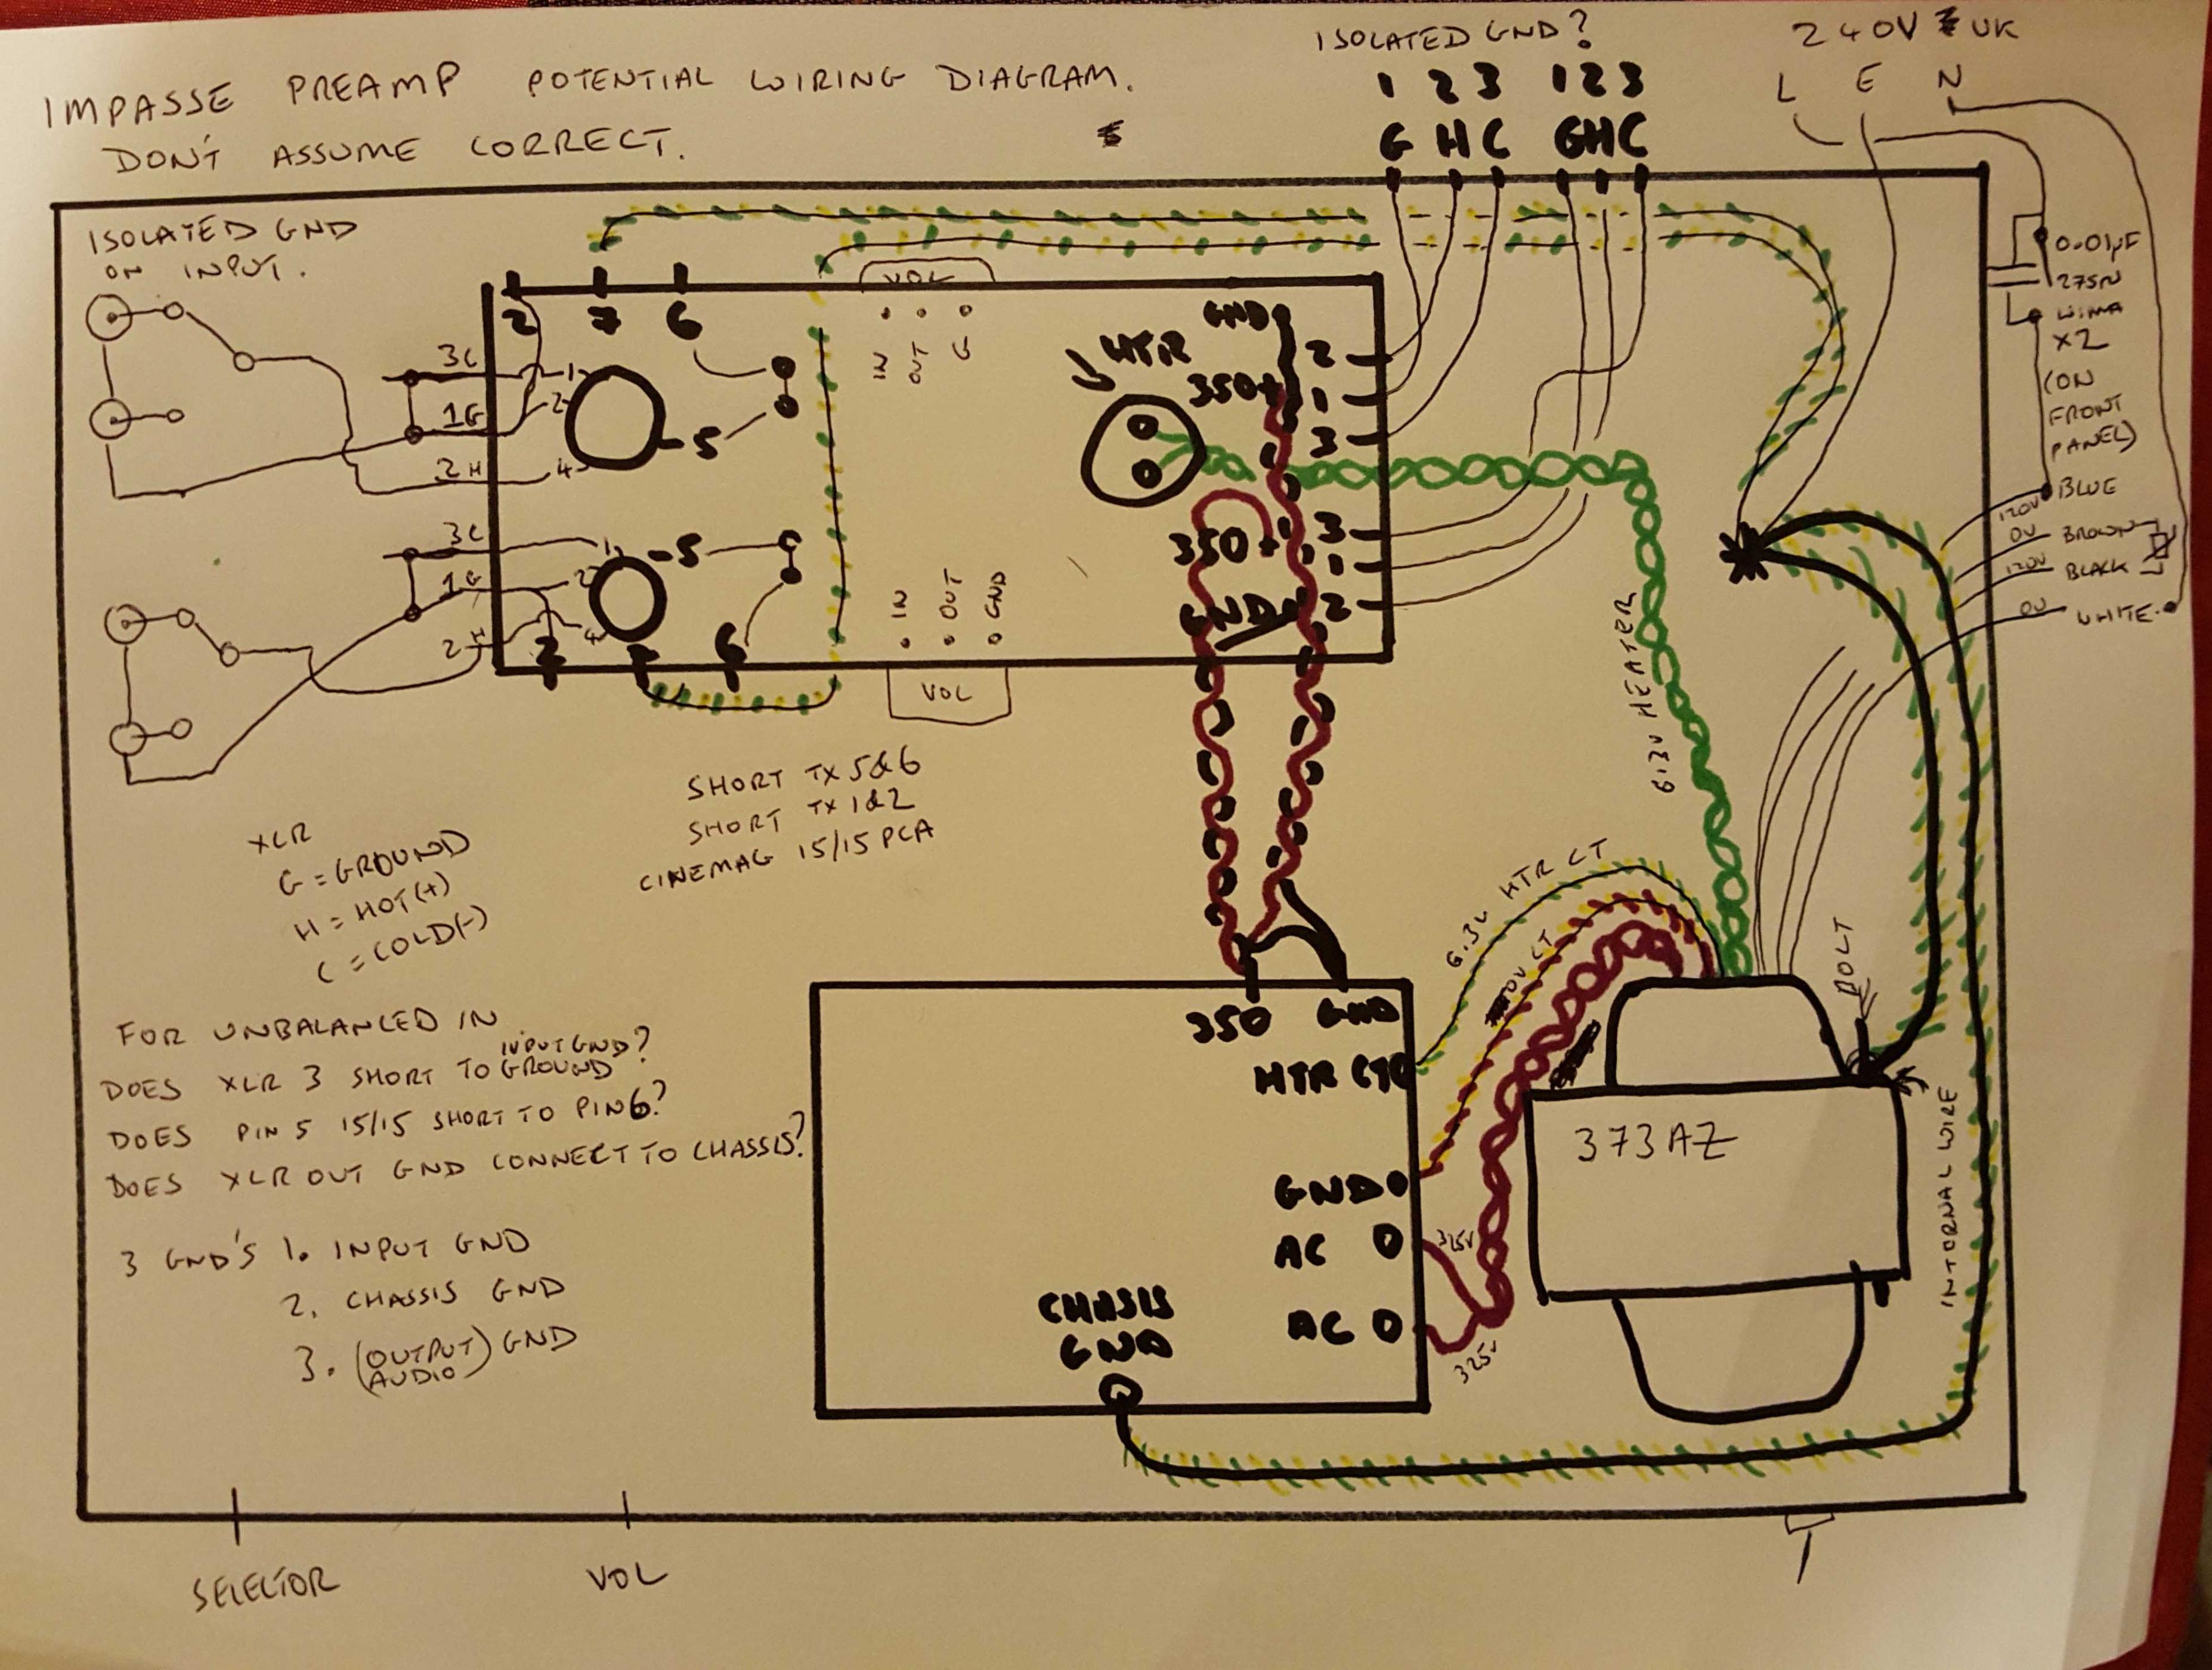 IMPASSE PREAMP POTENTIAL WIRING DIAGRAM.
DON'T ASSUME CORRECT.
ISOLATED GND?
1 2 3 1 2 3
G H C G H C
240V UK
L E N
ISOLATED GND
ON INPUT.
2 7 6
VOL
IN OUT G
HTR
GND
350+
2
1
3
3C
1G
2H
1
2
4
5
3C
1G
2H
1
2
4
5
2 7 6
IN OUT GND
VOL
350+
GND
3
1
2
0.01µF
275V
WIMA
X2
(ON
FRONT
PANEL)
120V BLUE
0V BROWN
120V BLACK
0V WHITE
6.3V HEATER
SHORT TX 5&6
SHORT TX 1&2
CINEMAG 15/15 PCA
XLR
G = GROUND
H = HOT(+)
C = COLD(-)
FOR UNBALANCED IN
INPUT GND?
DOES XLR 3 SHORT TO GROUND
DOES PIN 5 15/15 SHORT TO PIN6?
DOES XLR OUT GND CONNECT TO CHASSIS?
3 GND'S 1. INPUT GND
2. CHASSIS GND
3. (OUTPUT) GND
AUDIO
6.3V HTR CT
0V CT
BOLT
350 GND
HTR CT
GND
AC
AC
325V
325V
CHASIS
GND
373AZ
INTORNAL WIRE
SELECTOR
VOL